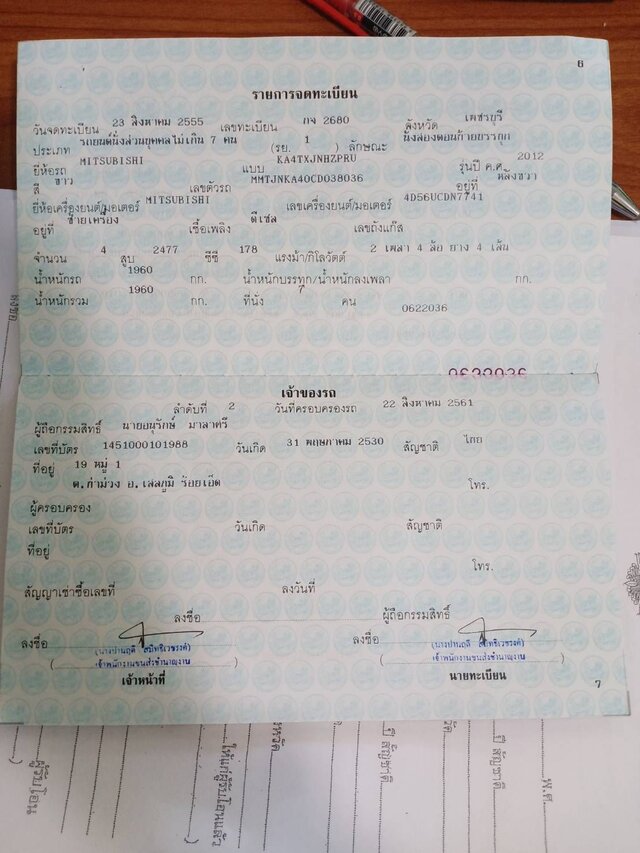 6
รายการจดทะเบียน
วันจดทะเบียน 23 สิงหาคม 2555 เลขทะเบียน กจ 2680 จังหวัด เพชรบุรี
ประเภท รถยนต์นั่งส่วนบุคคลไม่เกิน 7 คน (รย. 1 ) ลักษณะ นั่งสองตอนท้ายบรรทุก
ยี่ห้อรถ MITSUBISHI แบบ KA4TXJNHZPRU รุ่นปี ค.ศ. 2012
สี ขาว เลขตัวรถ MMTJNKA40CD038036 อยู่ที่ หลังขวา
ยี่ห้อเครื่องยนต์/มอเตอร์ MITSUBISHI เลขเครื่องยนต์/มอเตอร์ 4D56UCDN7741
อยู่ที่ ซ้ายเครื่อง เชื้อเพลิง ดีเซล เลขถังแก๊ส
จำนวน 4 สูบ 2477 ซีซี 178 แรงม้า/กิโลวัตต์ 2 เพลา 4 ล้อ ยาง 4 เส้น
น้ำหนักรถ 1960 กก. น้ำหนักบรรทุก/น้ำหนักลงเพลา กก.
น้ำหนักรวม 1960 กก. ที่นั่ง 7 คน
0622036
0622036
เจ้าของรถ
ลำดับที่ 2 วันที่ครอบครองรถ 22 สิงหาคม 2561
ผู้ถือกรรมสิทธิ์ นายอนุรักษ์ มาลาศรี
เลขที่บัตร 1451000101988 วันเกิด 31 พฤษภาคม 2530 สัญชาติ ไทย
ที่อยู่ 19 หมู่ 1
ต.ท่าม่วง อ.เสลภูมิ ร้อยเอ็ด โทร.
ผู้ครอบครอง
เลขที่บัตร วันเกิด สัญชาติ
ที่อยู่
โทร.
สัญญาเช่าซื้อเลขที่ ลงวันที่
ลงชื่อ ผู้ถือกรรมสิทธิ์
ลงชื่อ ลงชื่อ
เจ้าพนักงานขนส่งชำนาญงาน เจ้าพนักงานขนส่งชำนาญงาน
เจ้าหน้าที่ นายทะเบียน
7
ผู้รับโอน
ให้แก่ผู้รับโอนแล้ว
ปี สัญชาติ
ปี สัญชาติ
พ.ศ.